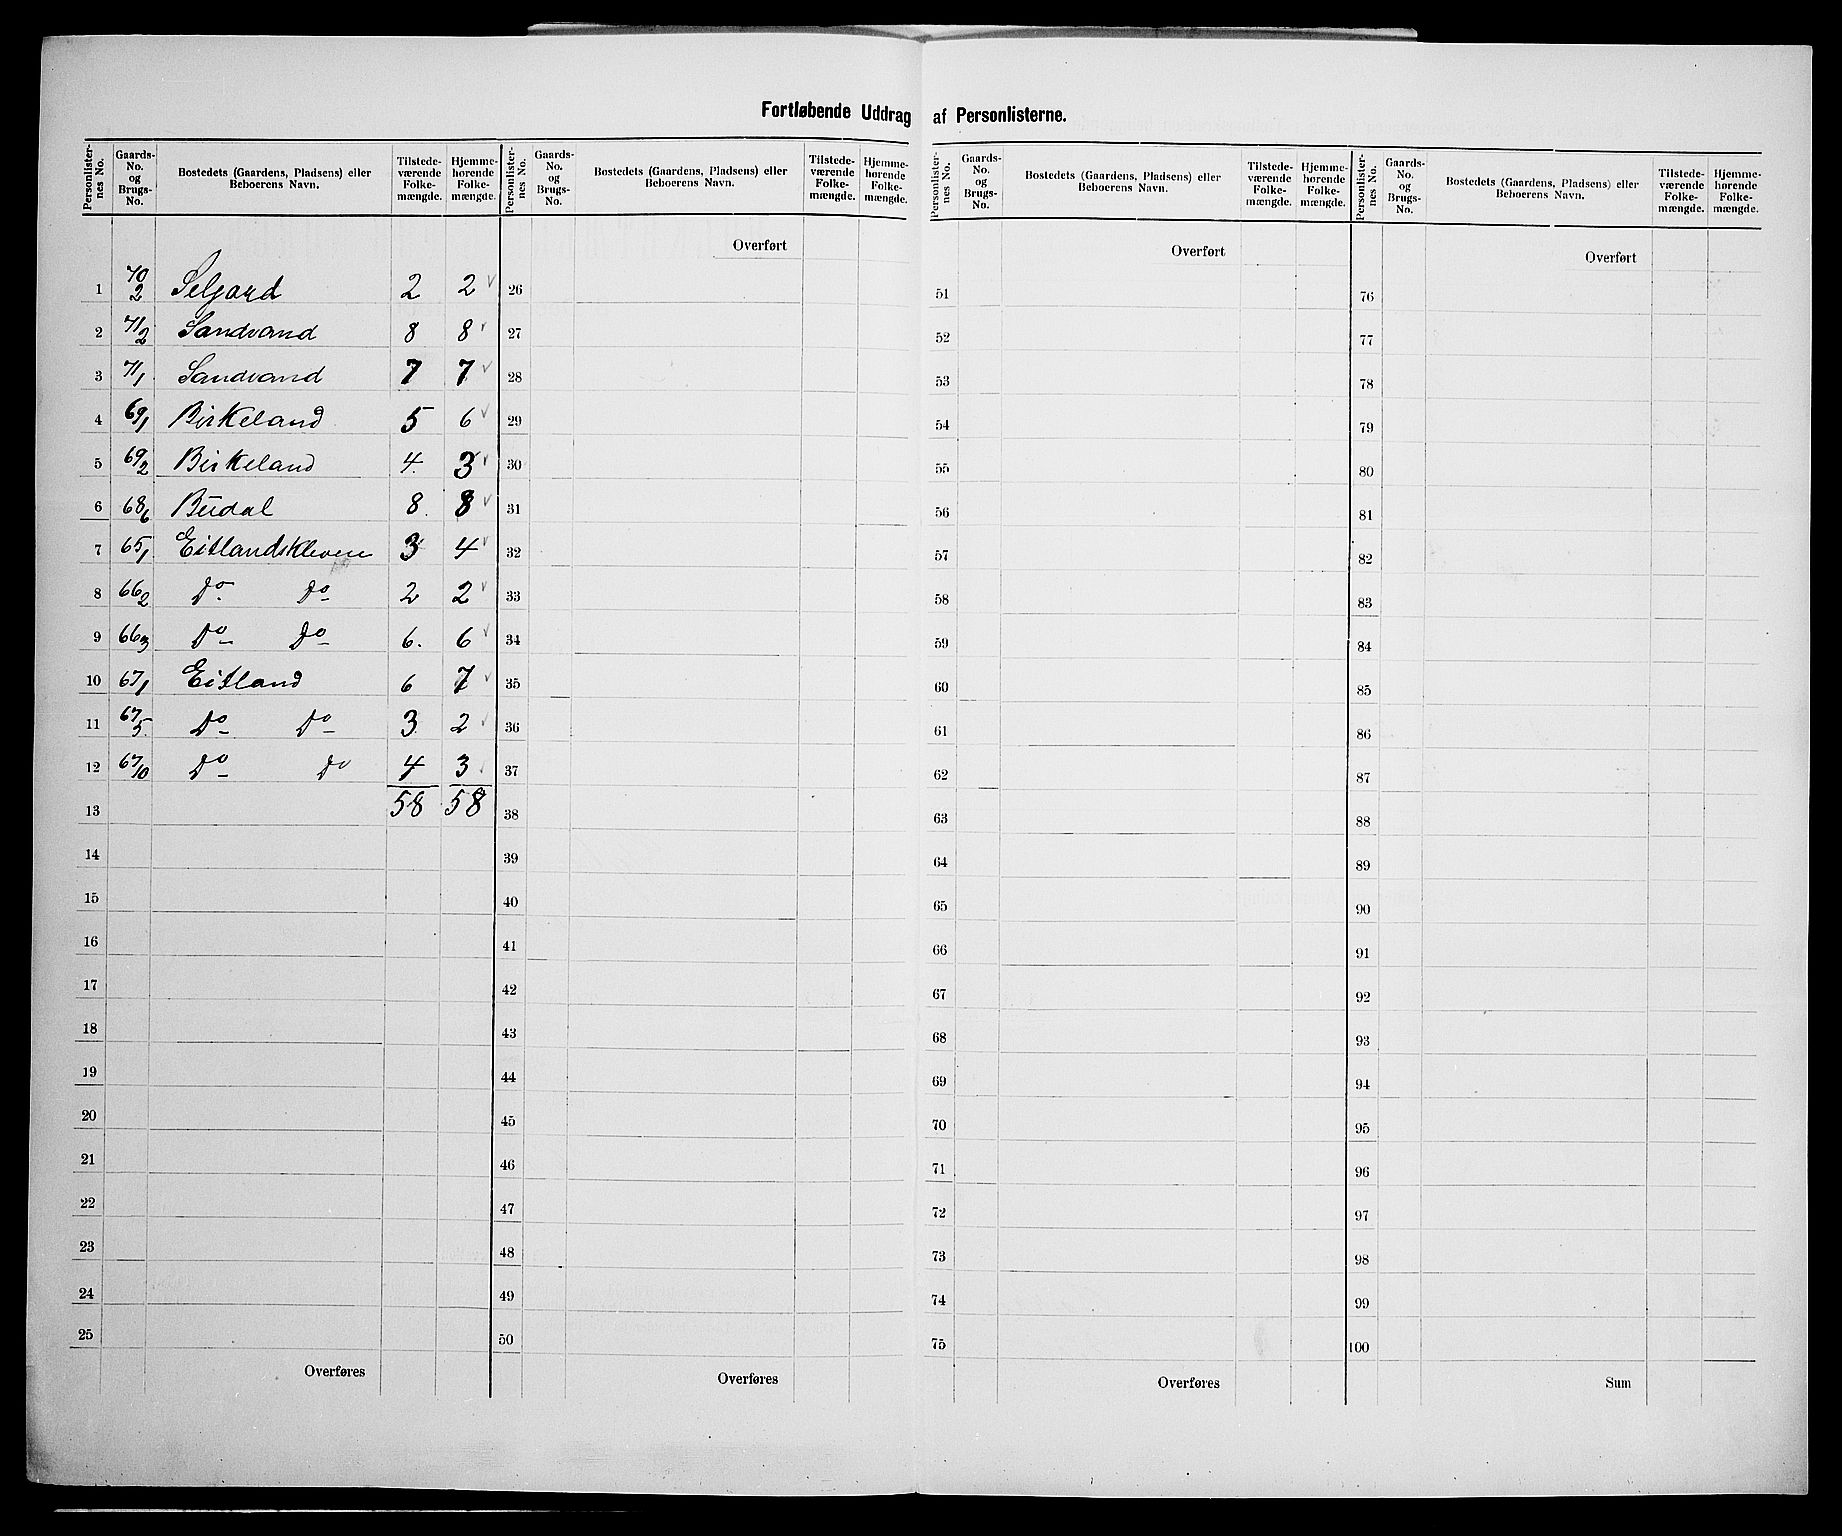 Fortløbende Uddrag af Personlisterne.
Personlister-nes No. Gaards-No. og Brugs-No. Bostedets (Gaardens, Pladsens) eller Beboerens Navn. Tilstede-værende Folke-mængde. Hjemme-hørende Folke-mængde.
1 70/2 Selgard 2 2
2 71/2 Sandvand 8 8
3 71/1 Sandvand 7 7
4 69/1 Birkeland 5 6
5 69/2 Birkeland 4. 3
6 68/6 Budal 8. 8
7 65/1 Eitlandskleven 3 4
8 66/2 Do Do 2 2
9 66/3 Do Do 6. 6
10 67/1 Eitland 6 7
11 67/5 Do Do 3. 2
12 67/10 Do Do 4 3
13 58 58
14
15
16
17
18
19
20
21
22
23
24
25
Overføres
Personlister-nes No. Gaards-No. og Brugs-No. Bostedets (Gaardens, Pladsens) eller Beboerens Navn. Tilstede-værende Folke-mængde. Hjemme-hørende Folke-mængde.
Overført
26
27
28
29
30
31
32
33
34
35
36
37
38
39
40
41
42
43
44
45
46
47
48
49
50
Overføres
Personlister-nes No. Gaards-No. og Brugs-No. Bostedets (Gaardens, Pladsens) eller Beboerens Navn. Tilstede-værende Folke-mængde. Hjemme-hørende Folke-mængde.
Overført
51
52
53
54
55
56
57
58
59
60
61
62
63
64
65
66
67
68
69
70
71
72
73
74
75
Overføres
Personlister-nes No. Gaards-No. og Brugs-No. Bostedets (Gaardens, Pladsens) eller Beboerens Navn. Tilstede-værende Folke-mængde. Hjemme-hørende Folke-mængde.
Overført
76
77
78
79
80
81
82
83
84
85
86
87
88
89
90
91
92
93
94
95
96
97
98
99
100
Sum